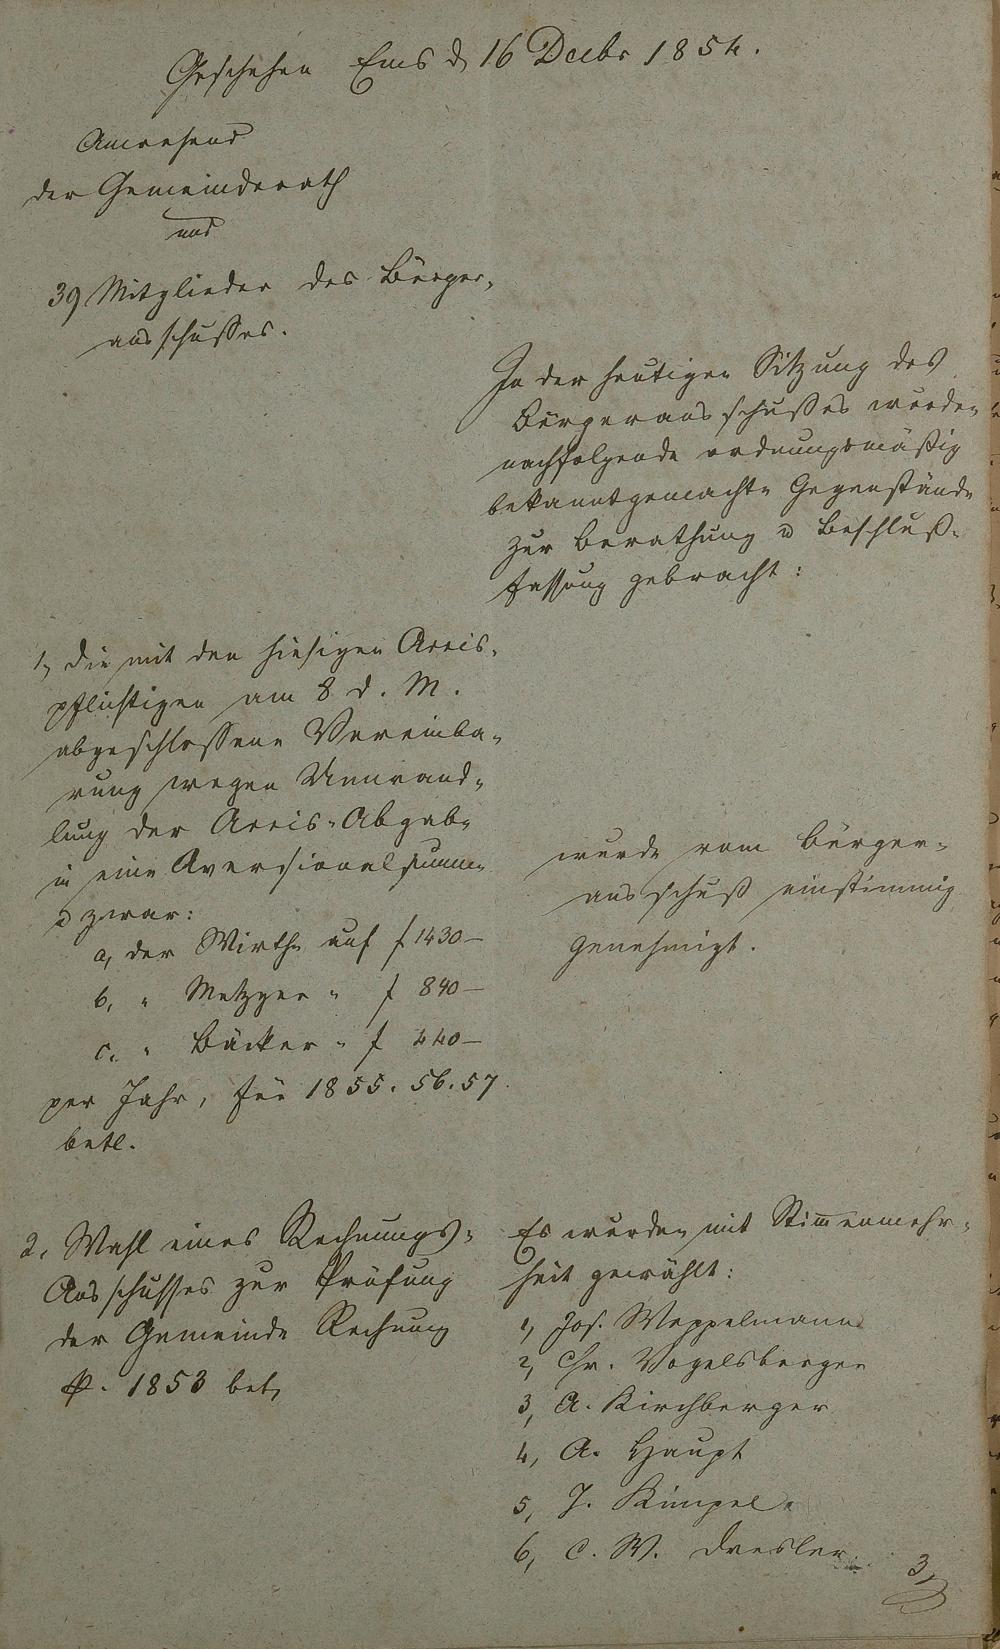 Geschehen Ems d 16 Decbr 1854.
Anwesend
der Gemeinderath
und
39 Mitglieder des Bürger-
ausschusses.
In der heutigen Sitzung des
Bürgerausschußes wurden
nachfolgende ordnungsmäßig
bekanntgemachte Gegenstände
zur Berathung u Beschluß-
fassung gebracht:
1, die mit den hiesigen Accis-
pflichtigen am 8 d. M.
abgeschlossene Vereinba-
rung wegen Umwand-
lung der Accis-Abgabe
in eine Aversionalsumme
u zwar:
a, der Wirthe auf f 1430 —
b, " Metzger " f 840 —
c, " Bäcker " f 440 —
per Jahr, für 1855. 56. 57.
betl.
wurde vom Bürger-
ausschuß einstimmig
genehmigt.
2, Wahl eines Rechnungs-
Ausschusses zur Prüfung
der Gemeinde Rechnung
p. 1853 bet,
Es wurden mit Stimmenmehr-
heit gewählt:
1, Jos. Weppelmann
2, Chr. Vogelsberger
3, A. Kirchberger
4, A. Haupt
5, J. Kimpel.
6, C. W. Dresler.
3,